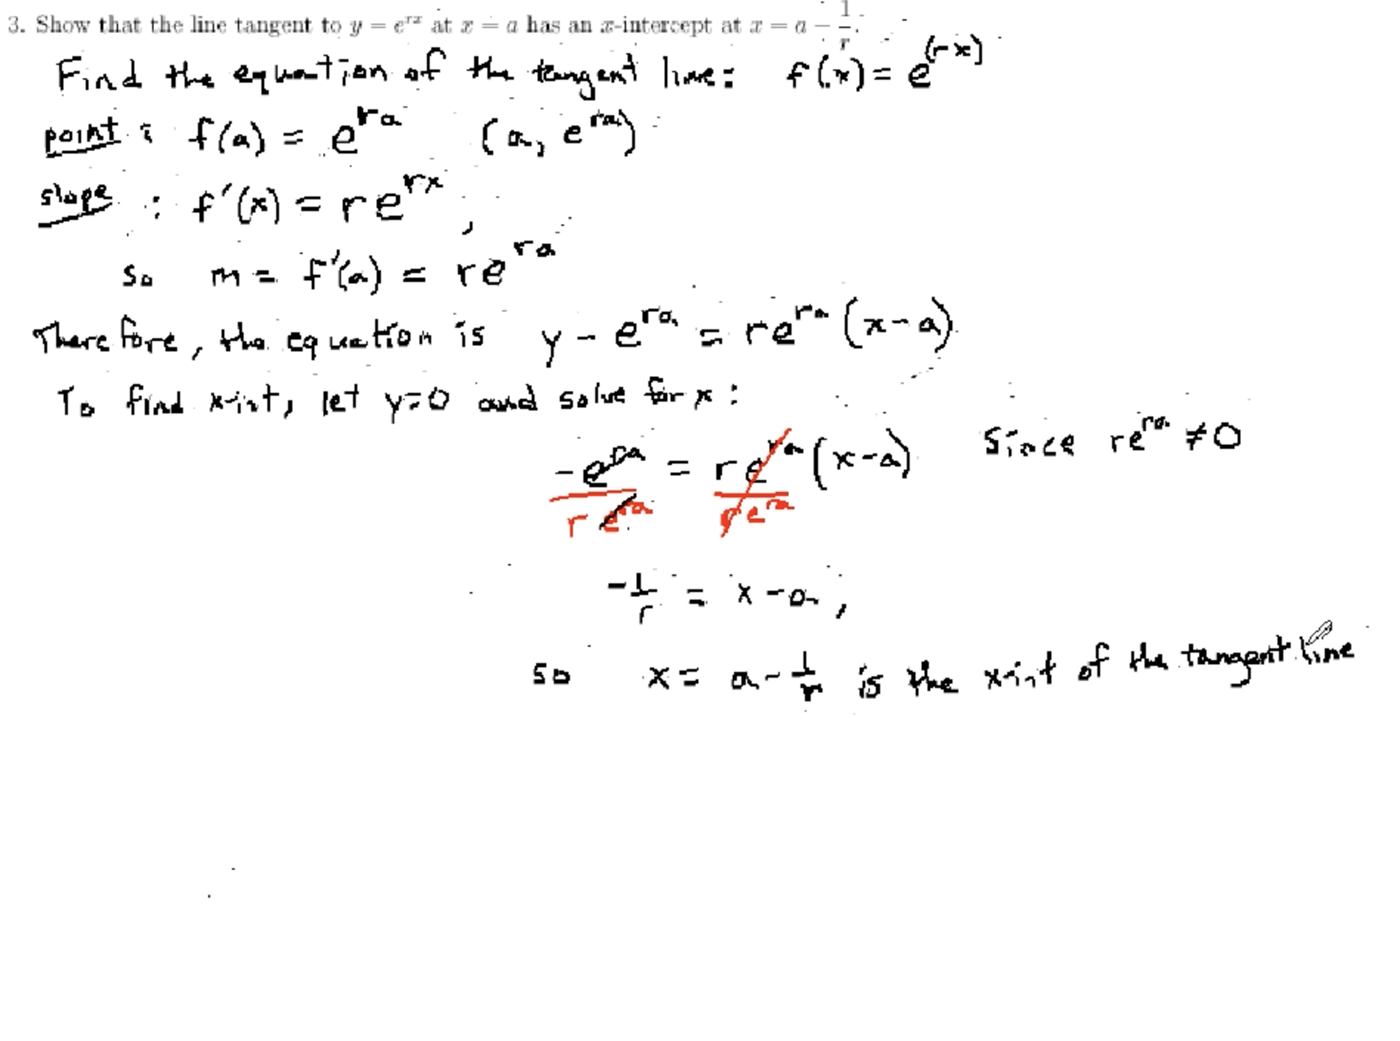 3. Show that the line tangent to y = e^{rx} at x = a has an x-intercept at x = a − 1/r.
Find the equation of the tangent line: f(x) = e^{(rx)}
point: f(a) = e^{ra} (a, e^{ra})
slope: f'(x) = re^{rx},
so m = f'(a) = re^{ra}
Therefore, the equation is y - e^{ra} = re^{ra}(x-a)
To find x-int, let y=0 and solve for x:
-e^{ra}/re^{ra} = re^{ra}/re^{ra} (x-a) Since re^{ra} ≠ 0
-1/r = x-a,
so x = a - 1/r is the x-int of the tangent line